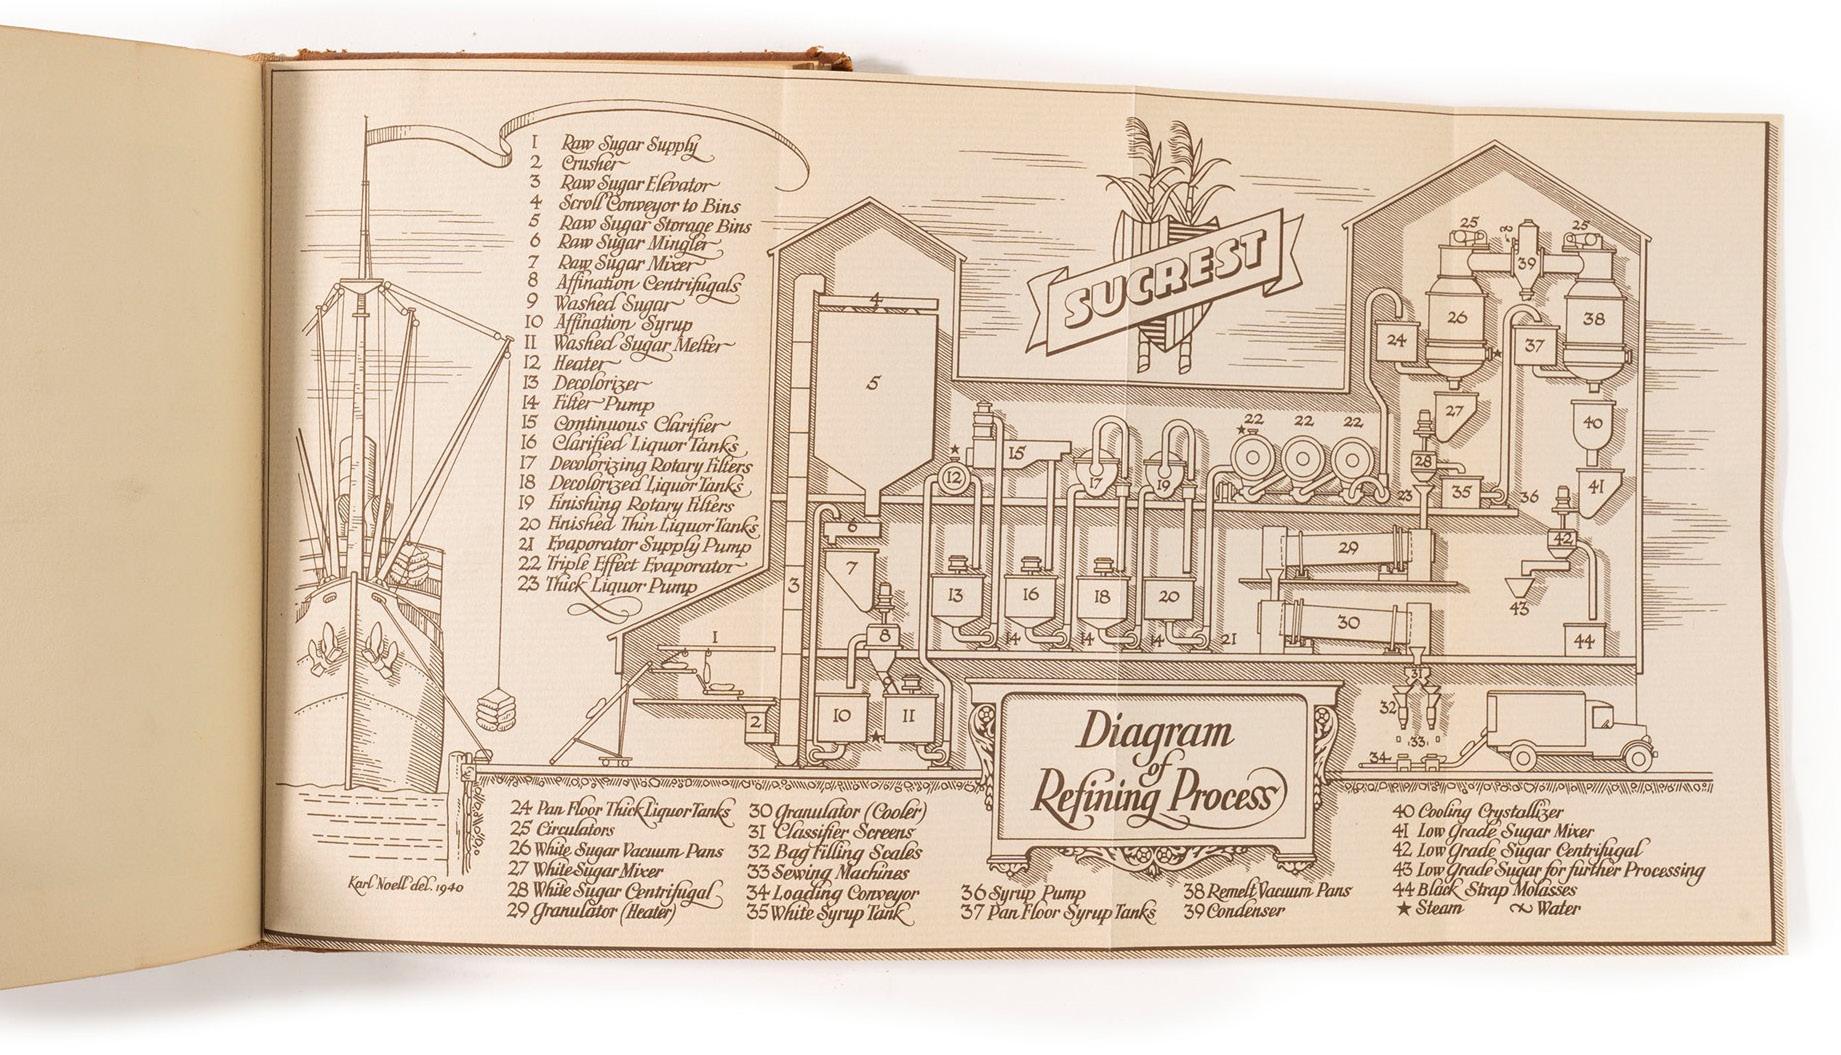 1 Raw Sugar Supply
2 Crusher
3 Raw Sugar Elevator
4 Scroll Conveyor to Bins
5 Raw Sugar Storage Bins
6 Raw Sugar Mingler
7 Raw Sugar Mixer
8 Affination Centrifugals
9 Washed Sugar
10 Affination Syrup
11 Washed Sugar Melter
12 Heater
13 Decolorizer
14 Filter Pump
15 Continuous Clarifier
16 Clarified Liquor Tanks
17 Decolorizing Rotary Filters
18 Decolorized Liquor Tanks
19 Finishing Rotary Filters
20 Finished Thin Liquor Tanks
21 Evaporator Supply Pump
22 Triple Effect Evaporator
23 Thick Liquor Pump
SUCREST
25 25
39
26 38
24 37
4
5
27 40
22 22 22
15
12 17 19
28 35 23 36 41
6 42
7 3 29
13 16 18 20
43
8 30 44
14 14 14 21
1
31
32
2 10 11
33
34
Diagram
of
Refining Process
24 Pan Floor Thick Liquor Tanks
25 Circulators
26 White Sugar Vacuum Pans
27 White Sugar Mixer
28 White Sugar Centrifugal
29 Granulator (Heater)
30 Granulator (Cooler)
31 Classifier Screens
32 Bag Filling Scales
33 Sewing Machines
34 Loading Conveyor
35 White Syrup Tank
36 Syrup Pump
37 Pan Floor Syrup Tanks
38 Remelt Vacuum Pans
39 Condenser
40 Cooling Crystallizer
41 Low Grade Sugar Mixer
42 Low Grade Sugar Centrifugal
43 Low Grade Sugar for further Processing
44 Black Strap Molasses
★ Steam ~ Water
Karl Noell del. 1940